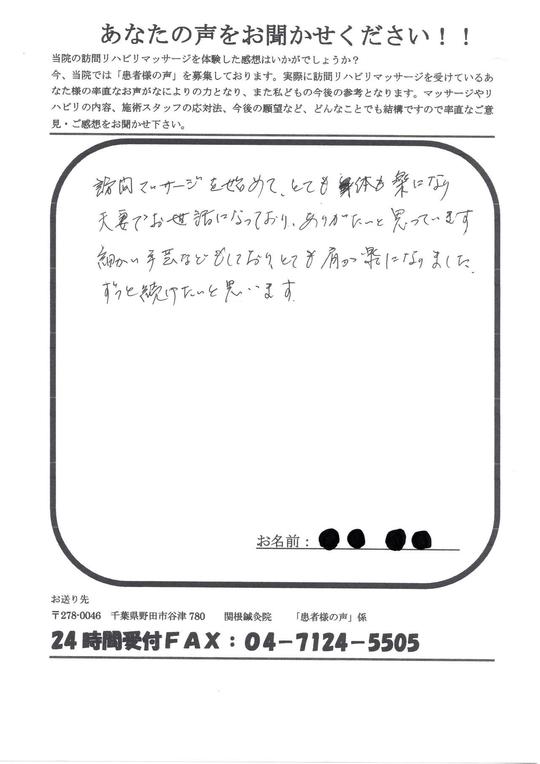 あなたの声をお聞かせください！！
当院の訪問リハビリマッサージを体験した感想はいかがでしょうか？
今、当院では「患者様の声」を募集しております。実際に訪問リハビリマッサージを受けているあ
なた様の率直なお声がなによりの力となり、また私どもの今後の参考となります。マッサージやリ
ハビリの内容、施術スタッフの応対法、今後の願望など、どんなことでも結構ですので率直なご意
見・ご感想をお聞かせ下さい。
訪問マッサージを始めて、とても身体も楽になり
夫妻でお世話になっており、ありがたいと思っています
細かい手芸などもしており、とても肩が楽になりました。
ずっと続けたいと思います
お名前：
お送り先
〒278-0046 千葉県野田市谷津780 関根鍼灸院 「患者様の声」係
24時間受付ＦＡＸ：04-7124-5505